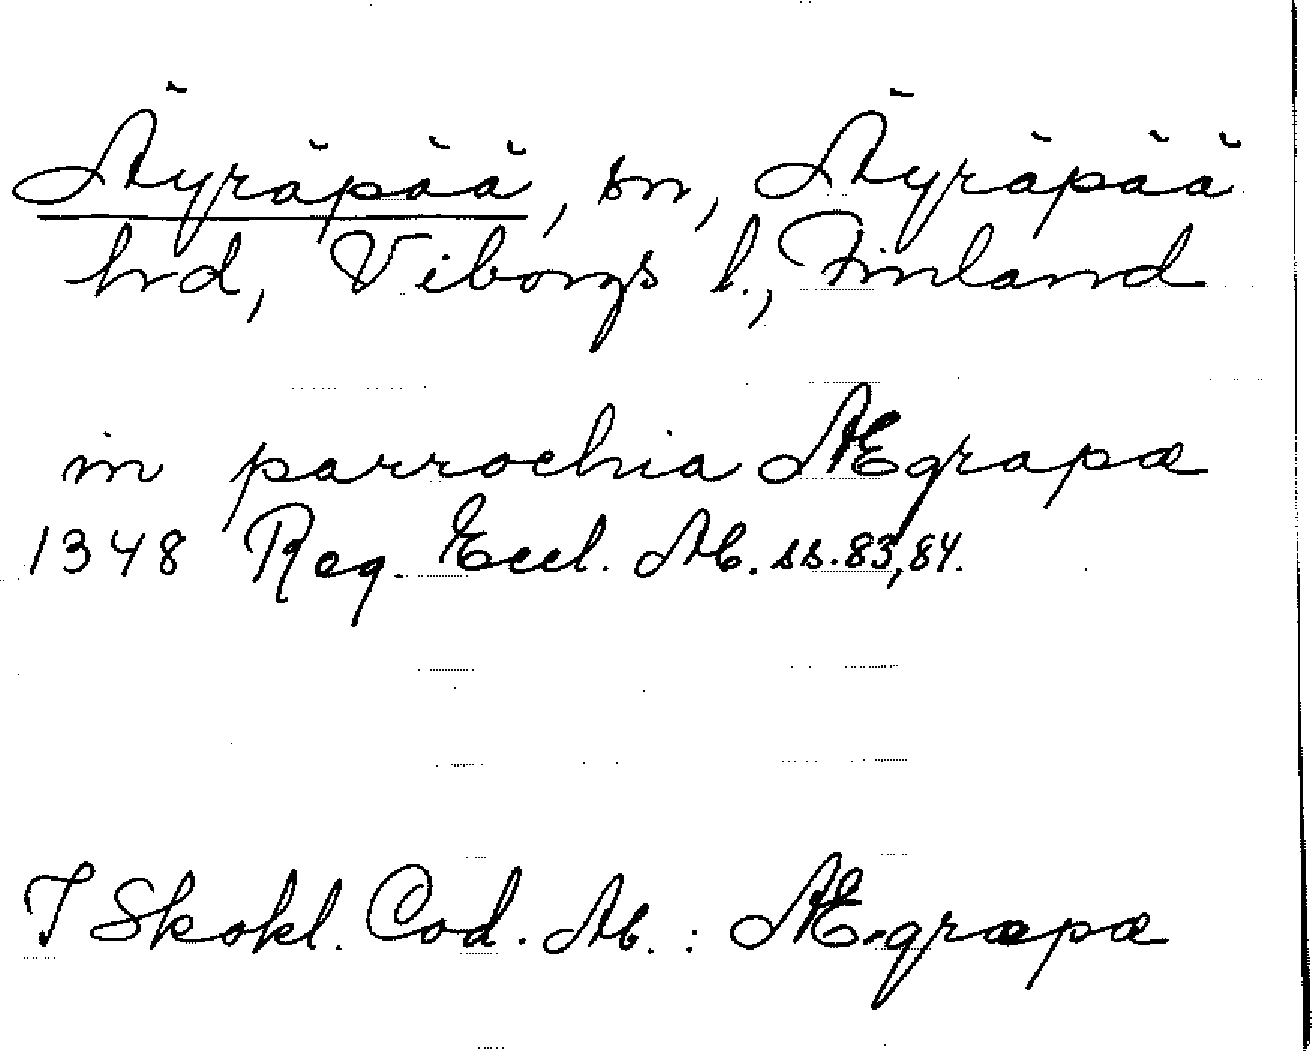 Äyräpää, sn, Äyräpää
hrd, Viborgs l., Finland
in parrochia Ægrapæ
1348 Reg. Eccl. Ab. ss. 83, 84.
I Skokl. Cod. Ab. : Ægræpæ